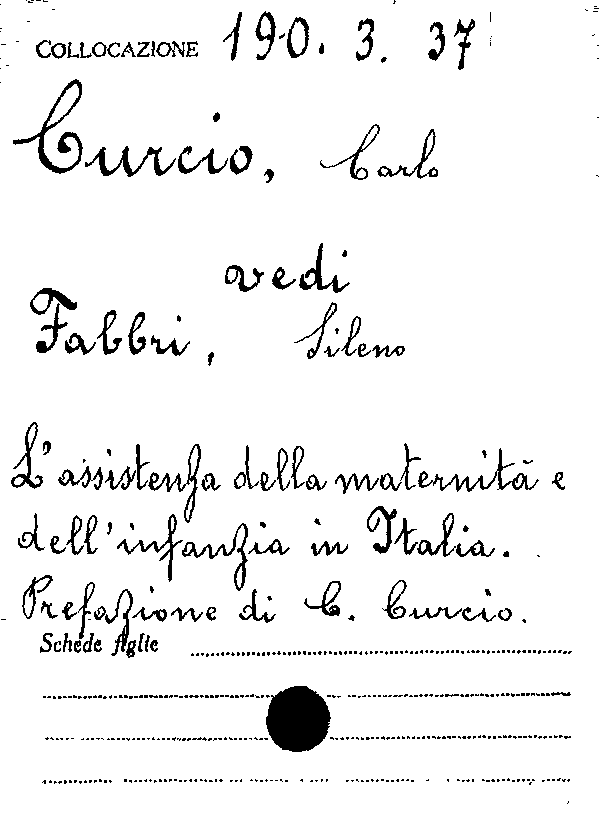 COLLOCAZIONE 190. 3. 37
Curcio, Carlo
vedi
Fabbri, Sileno
L'assistenza della maternità e
dell'infanzia in Italia.
Prefazione di C. Curcio.
Schede figlie